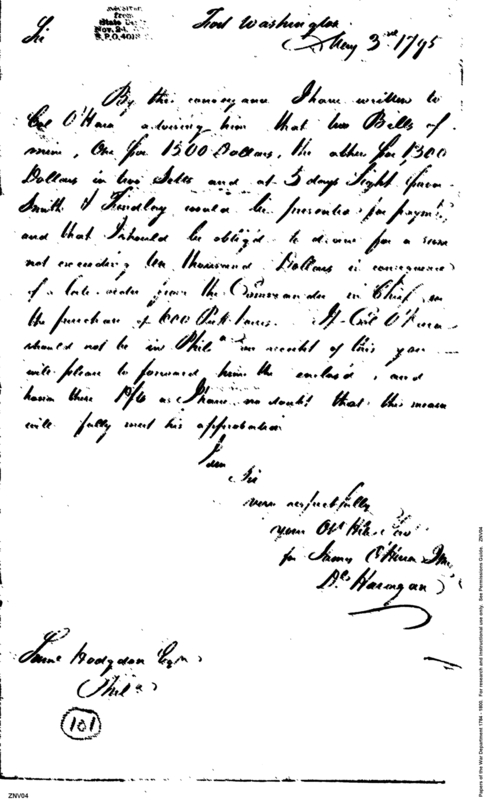 Received
from
State Dept
Nov. 24
S.P.O. 4018
Fort Washington
Sir
May 3rd 1795
By this conveyance I have written to
Col O'Hara advising him that two Bills of
mine, One for 1500 Dollars, the other for 1300
Dollars in two Setts and at 5 days Sight from
Smith & Findlay would be presented for payment,
and that I should be oblig'd to draw for a sum
not exceeding ten thousand Dollars in consequence
of a late order from the Commander in Chief on
the purchase of 600 Pack horses. If Col O'Hara
should not be in Phila on receipt of this you
will please to forward him the enclosed, and
have no doubt that this measure
will fully meet his approbation
I am
Sir
very respectfully
your Ob Hble
for James O'Hara
D. Haringan
Saml Hodgdon Esqr
Phila
101
ZNV04
Papers of the War Department 1784 - 1800. For research and instructional use only. See Permissions Guide. ZNV04